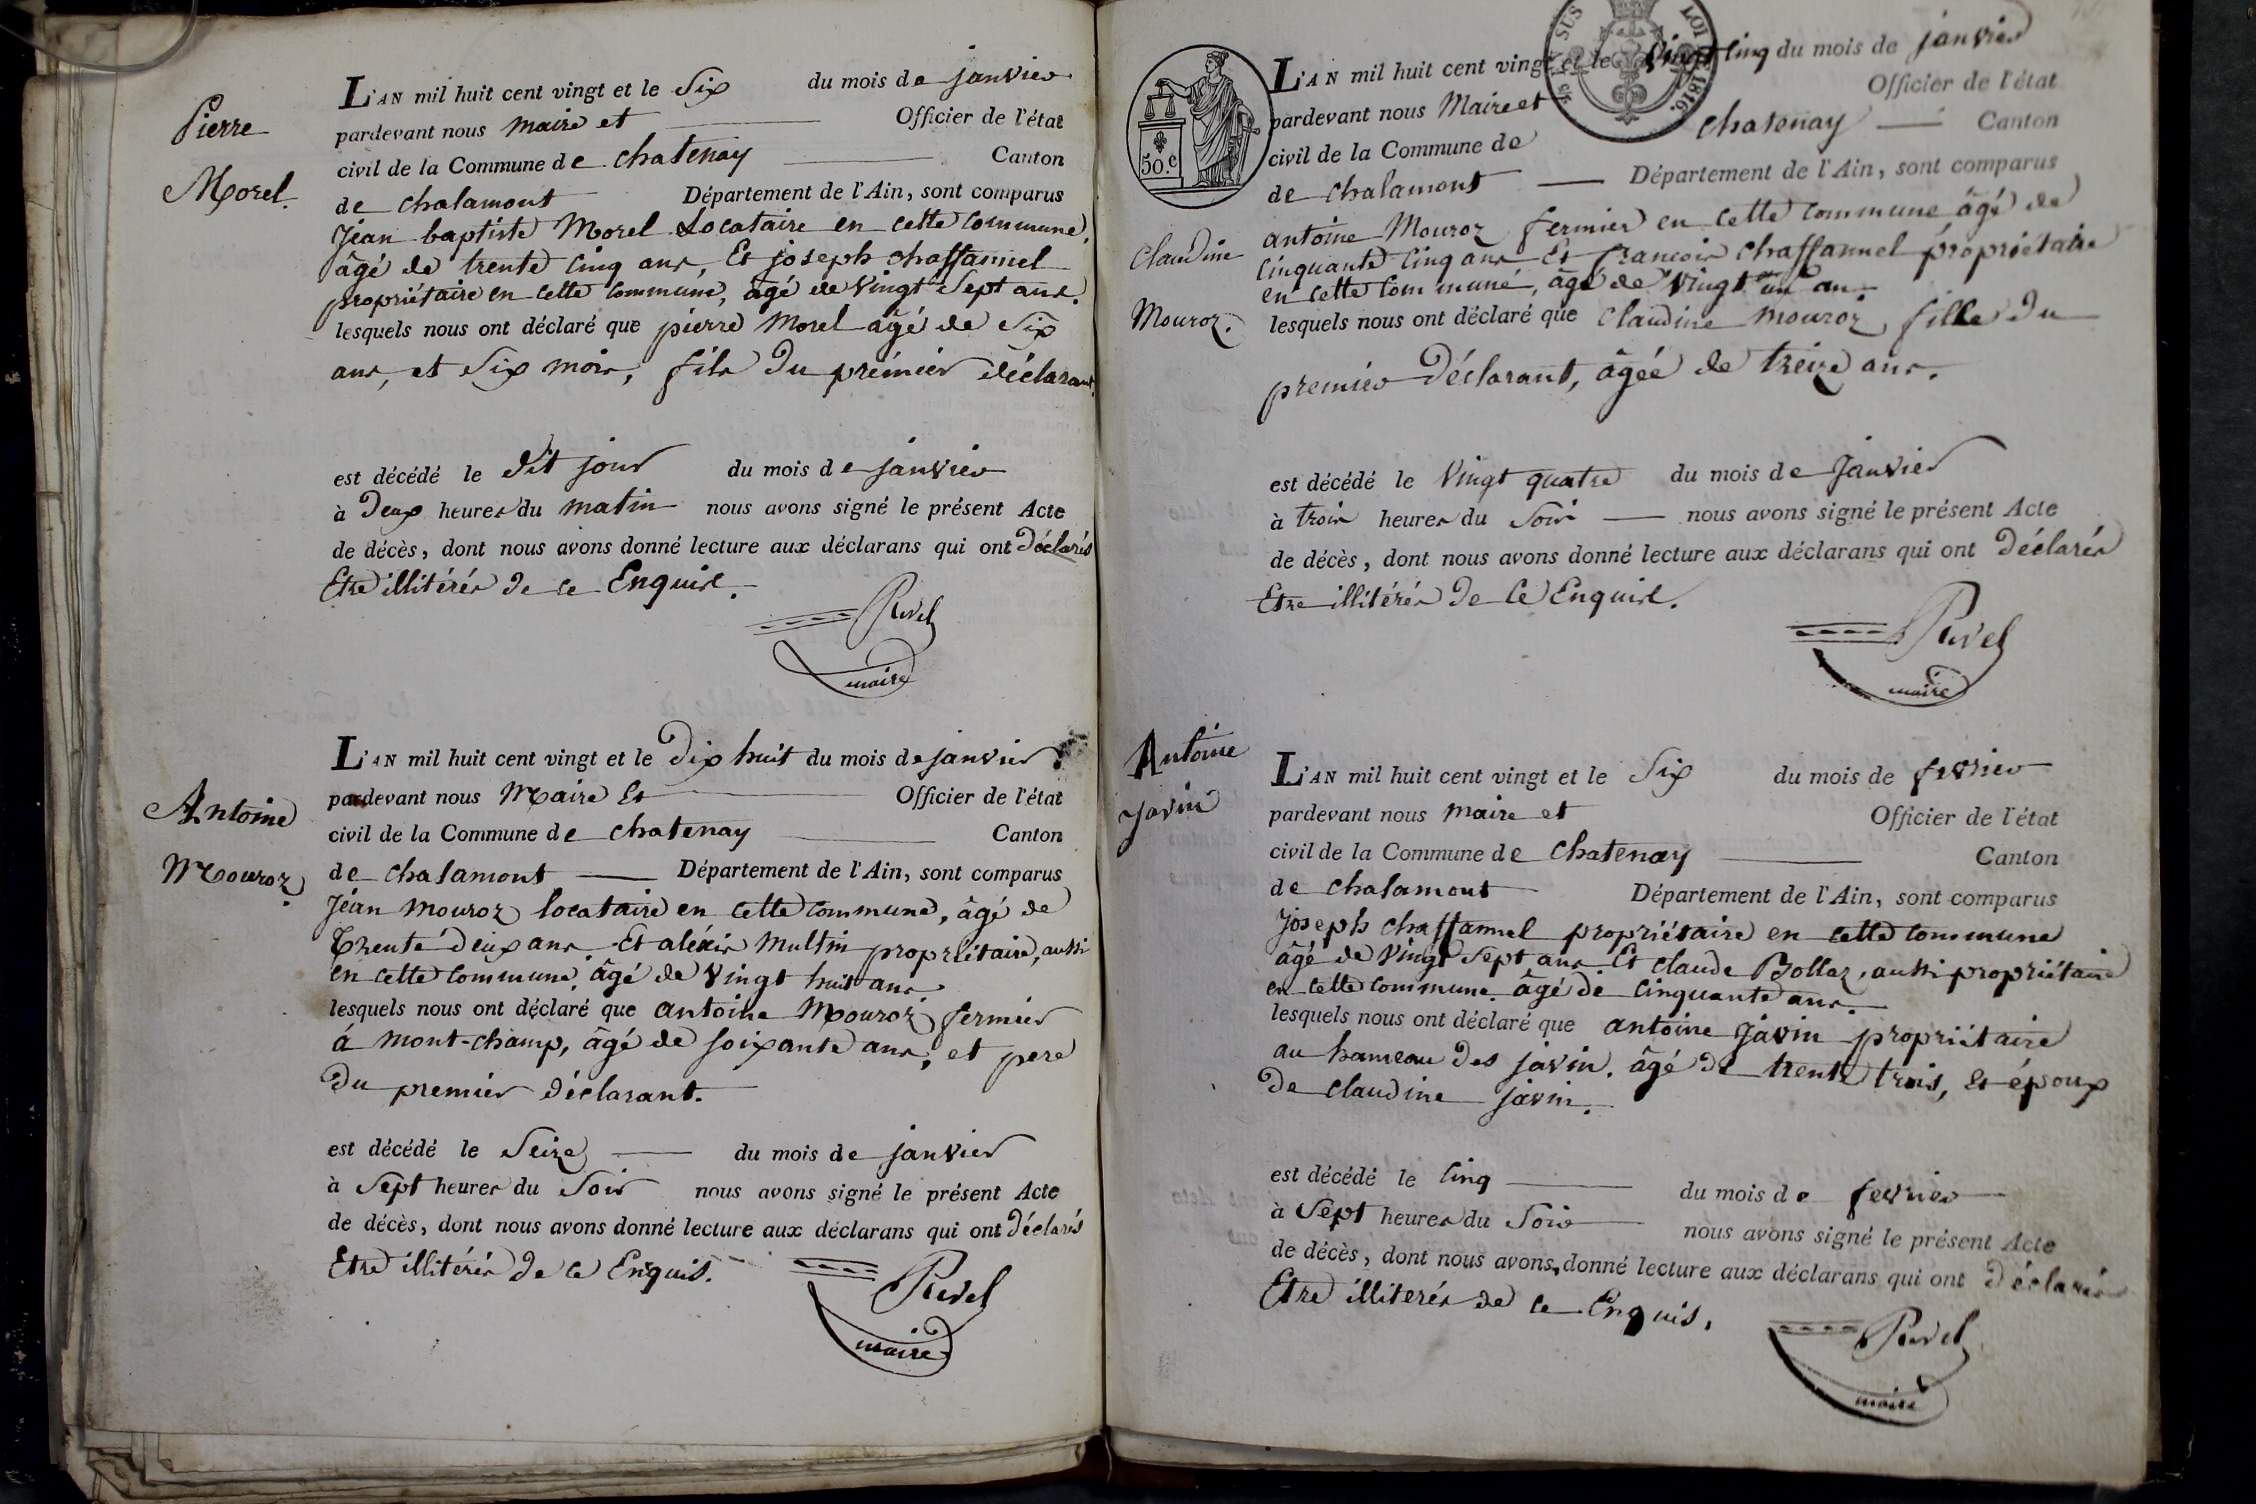 Pierre
Morel.
L'AN mil huit cent vingt et le Six du mois de janvier
pardevant nous maire et Officier de l'état
civil de la Commune de chatenay Canton
de chalamont Département de l'Ain, sont comparus
Jéan baptiste Morel Locataire en cette commune,
âgé de trente cinq ans, Et joseph chaffannel
propriétaire en cette commune, âgé de vingt Sept ans.
lesquels nous ont déclaré que pierre Morel âgé de Six
ans, et Six mois, fils du prémier déclarant.
est décédé le dit jour du mois de janvier
à Deux heures du matin nous avons signé le présent Acte
de décès, dont nous avons donné lecture aux déclarans qui ont Déclarés
Etre illitérés de ce Enquise.
maire
Antoine
Mouroz.
L'AN mil huit cent vingt et le Dix huit du mois de janvier.
pardevant nous Maire Et Officier de l'état
civil de la Commune de chatenay Canton
de chalamont Département de l'Ain, sont comparus
Jéan mouroz locataire en cette commune, âgé de
Trente deux ans Et aléxis Multin propriétaire, aussi
en cette commune, âgé de vingt huit ans
lesquels nous ont déclaré que antoine Mouroz fermier
á mont-champ, âgé de soixante ans, et pere
du premier déclarant.
est décédé le Seize du mois de janvier
à Sept heures du Soir nous avons signé le présent Acte
de décès, dont nous avons donné lecture aux déclarans qui ont Déclarés
Etre illitérés de ce Enquis.
maire
50.c
SUS
LOI 1816.
Claudine
Mouroz.
L'AN mil huit cent vingt et le Vingt cinq du mois de janvier
pardevant nous Maire et Officier de l'état
civil de la Commune de chatenay Canton
de chalamont Département de l'Ain, sont comparus
antoine Mouroz fermier en cette commune âgé de
cinquante cinq ans Et francois chaffannel propriétaire
en cette commune, âgé de vingt un an
lesquels nous ont déclaré que claudine mouroz fille du
premier Déclarant, âgée de treize ans.
est décédé le Vingt quatre du mois de Janvier
à trois heures du Soir nous avons signé le présent Acte
de décès, dont nous avons donné lecture aux déclarans qui ont Déclarés
Etre illitérés de Ce Enquise.
maire
Antoine
Javin
L'AN mil huit cent vingt et le Six du mois de fevrier
pardevant nous maire et Officier de l'état
civil de la Commune de chatenay Canton
de chalamont Département de l'Ain, sont comparus
Joseph chaffannel propriétaire en cette commune
âgé de Vingt Sept ans Et claude Bollaz, aussi propriétaire
en cette commune. âgé de cinquante ans.
lesquels nous ont déclaré que antoine Javin propriétaire
au hameau des javin. âgé de trente trois, Et époux
de claudine javin.
est décédé le cinq du mois de fevrier
à Sept heures du Soir nous avons signé le présent Acte
de décès, dont nous avons donné lecture aux déclarans qui ont Déclarés
Etre illiterés de ce Enquis.
maire